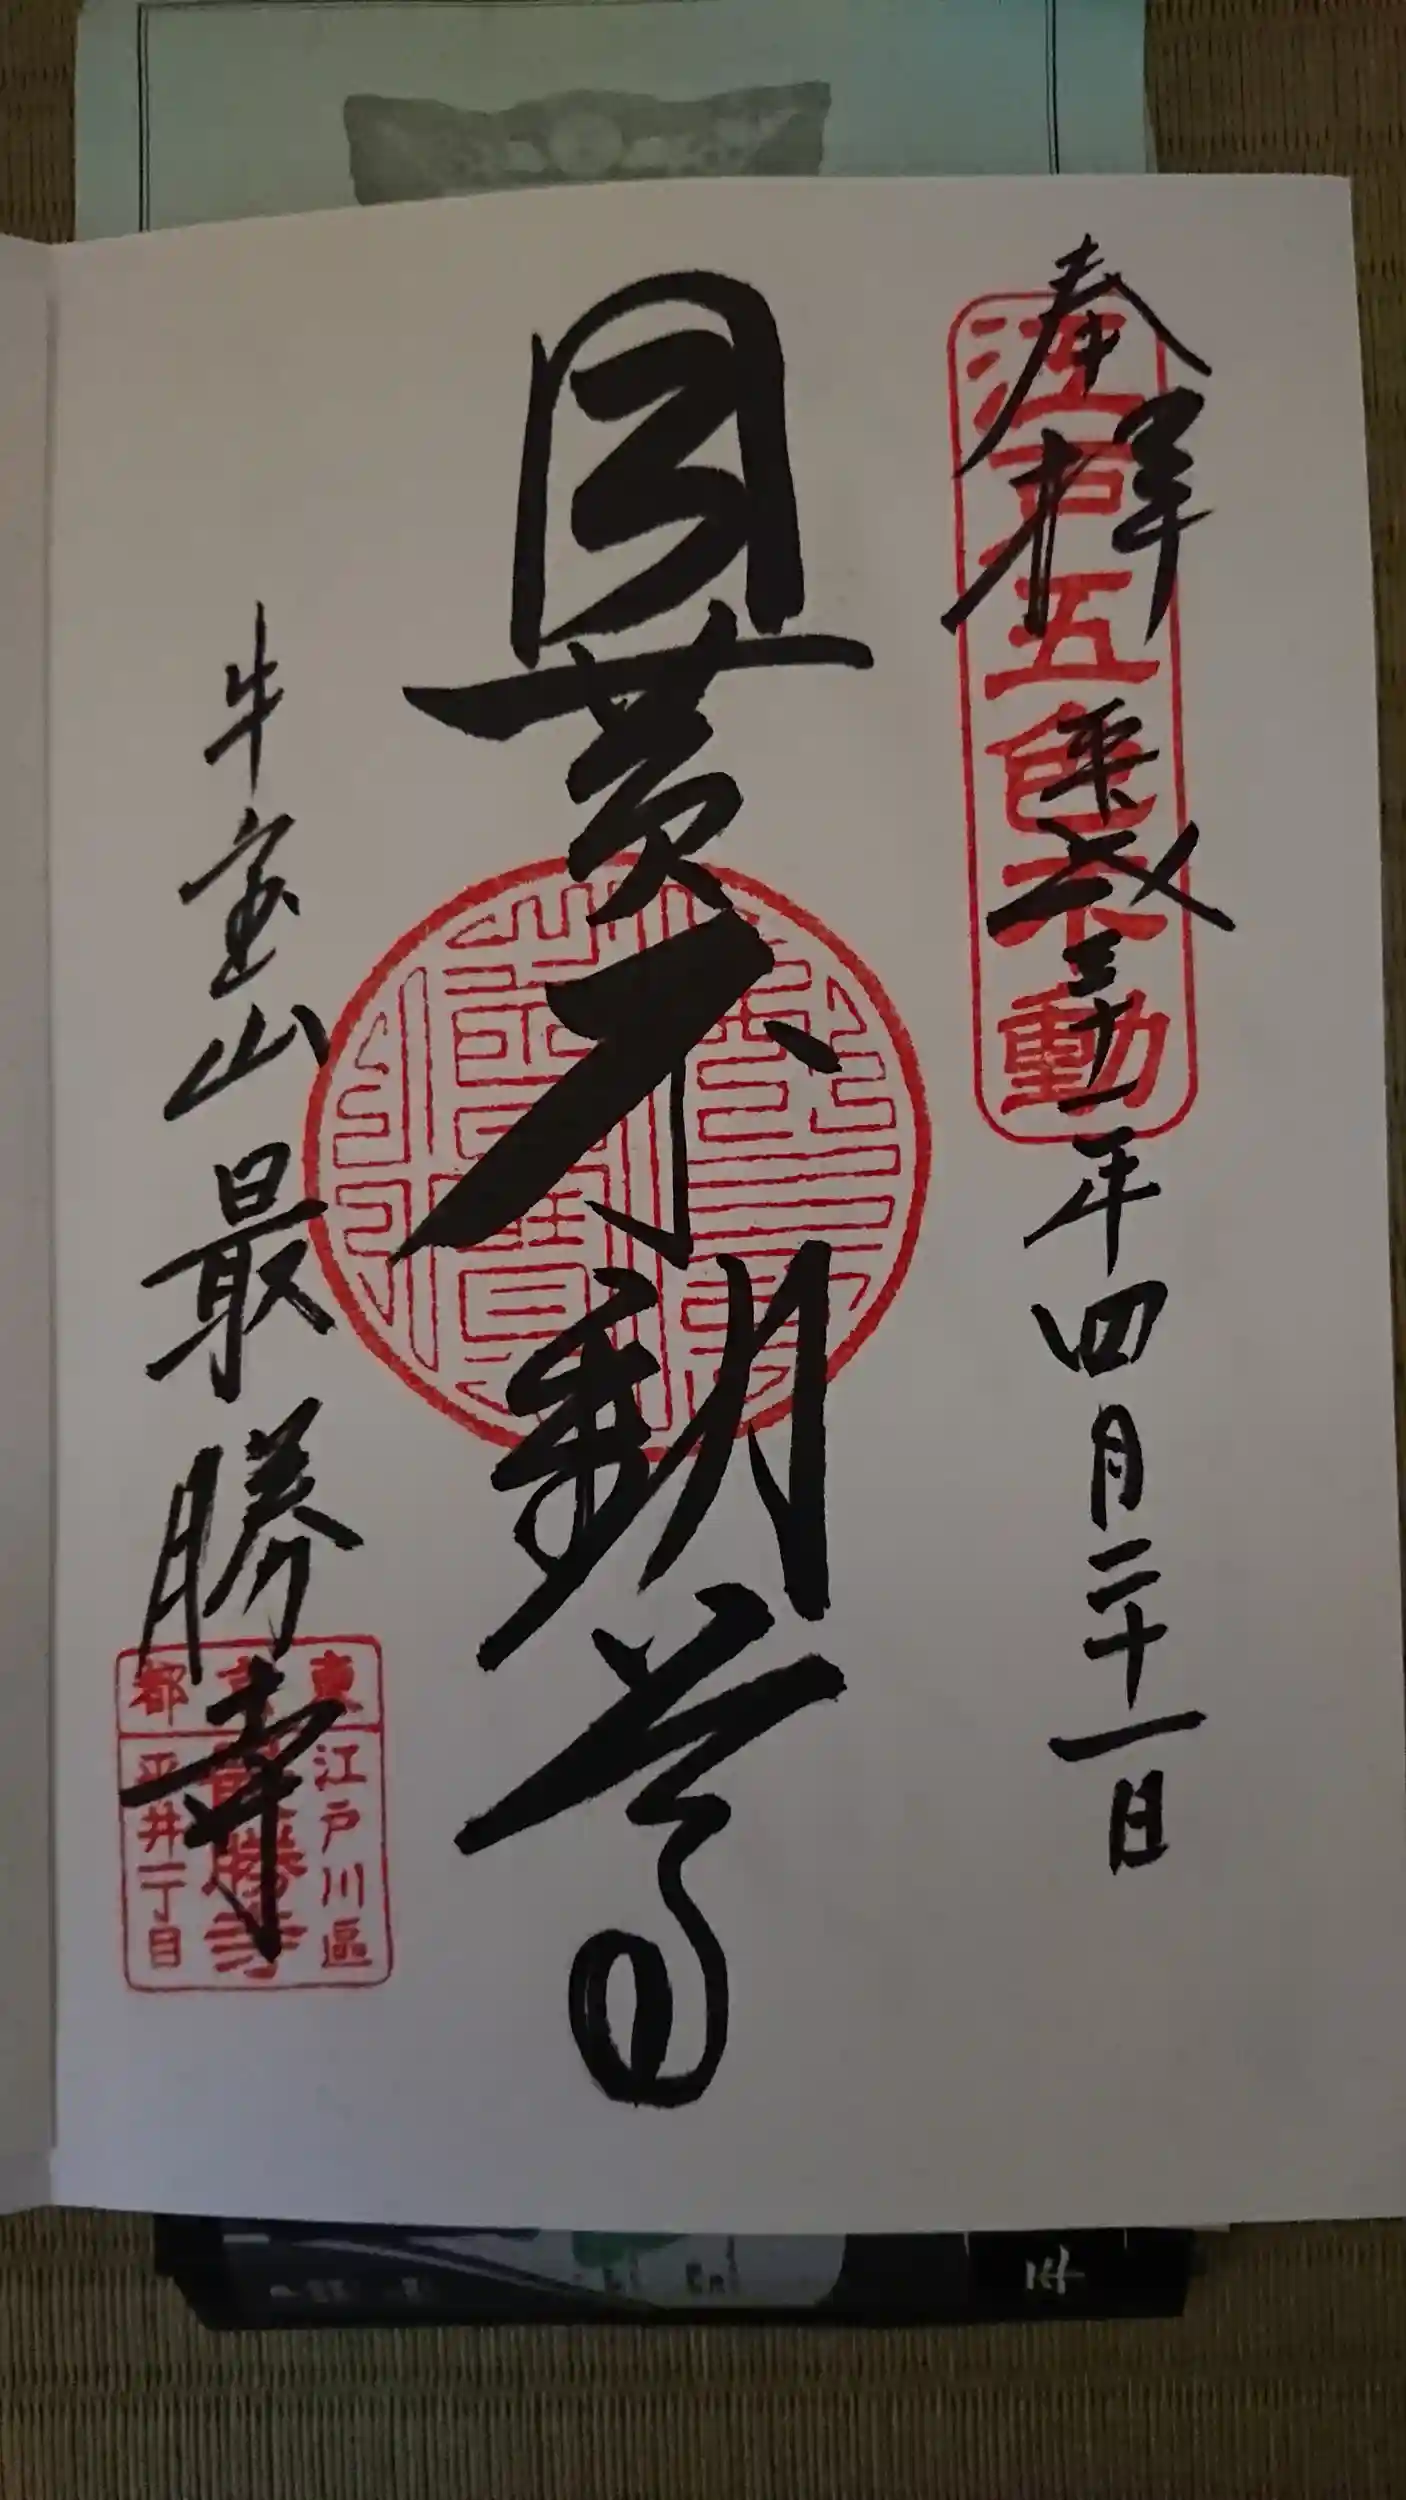 奉拝
江戸五色不動
平成三十一年四月二十一日
目黄不動尊
牛宝山最勝寺
東京都
江戸川區
最勝寺
平井一丁目